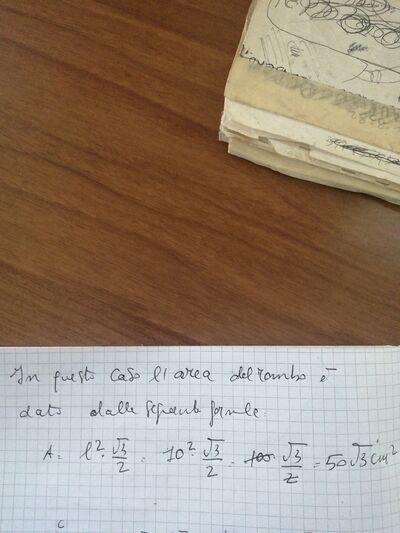 In questo caso l'area del rombo è
data dalla seguente formula:
A = l² · √3/2 = 10² · √3/2 = 100 · √3/2 = 50√3 cm²